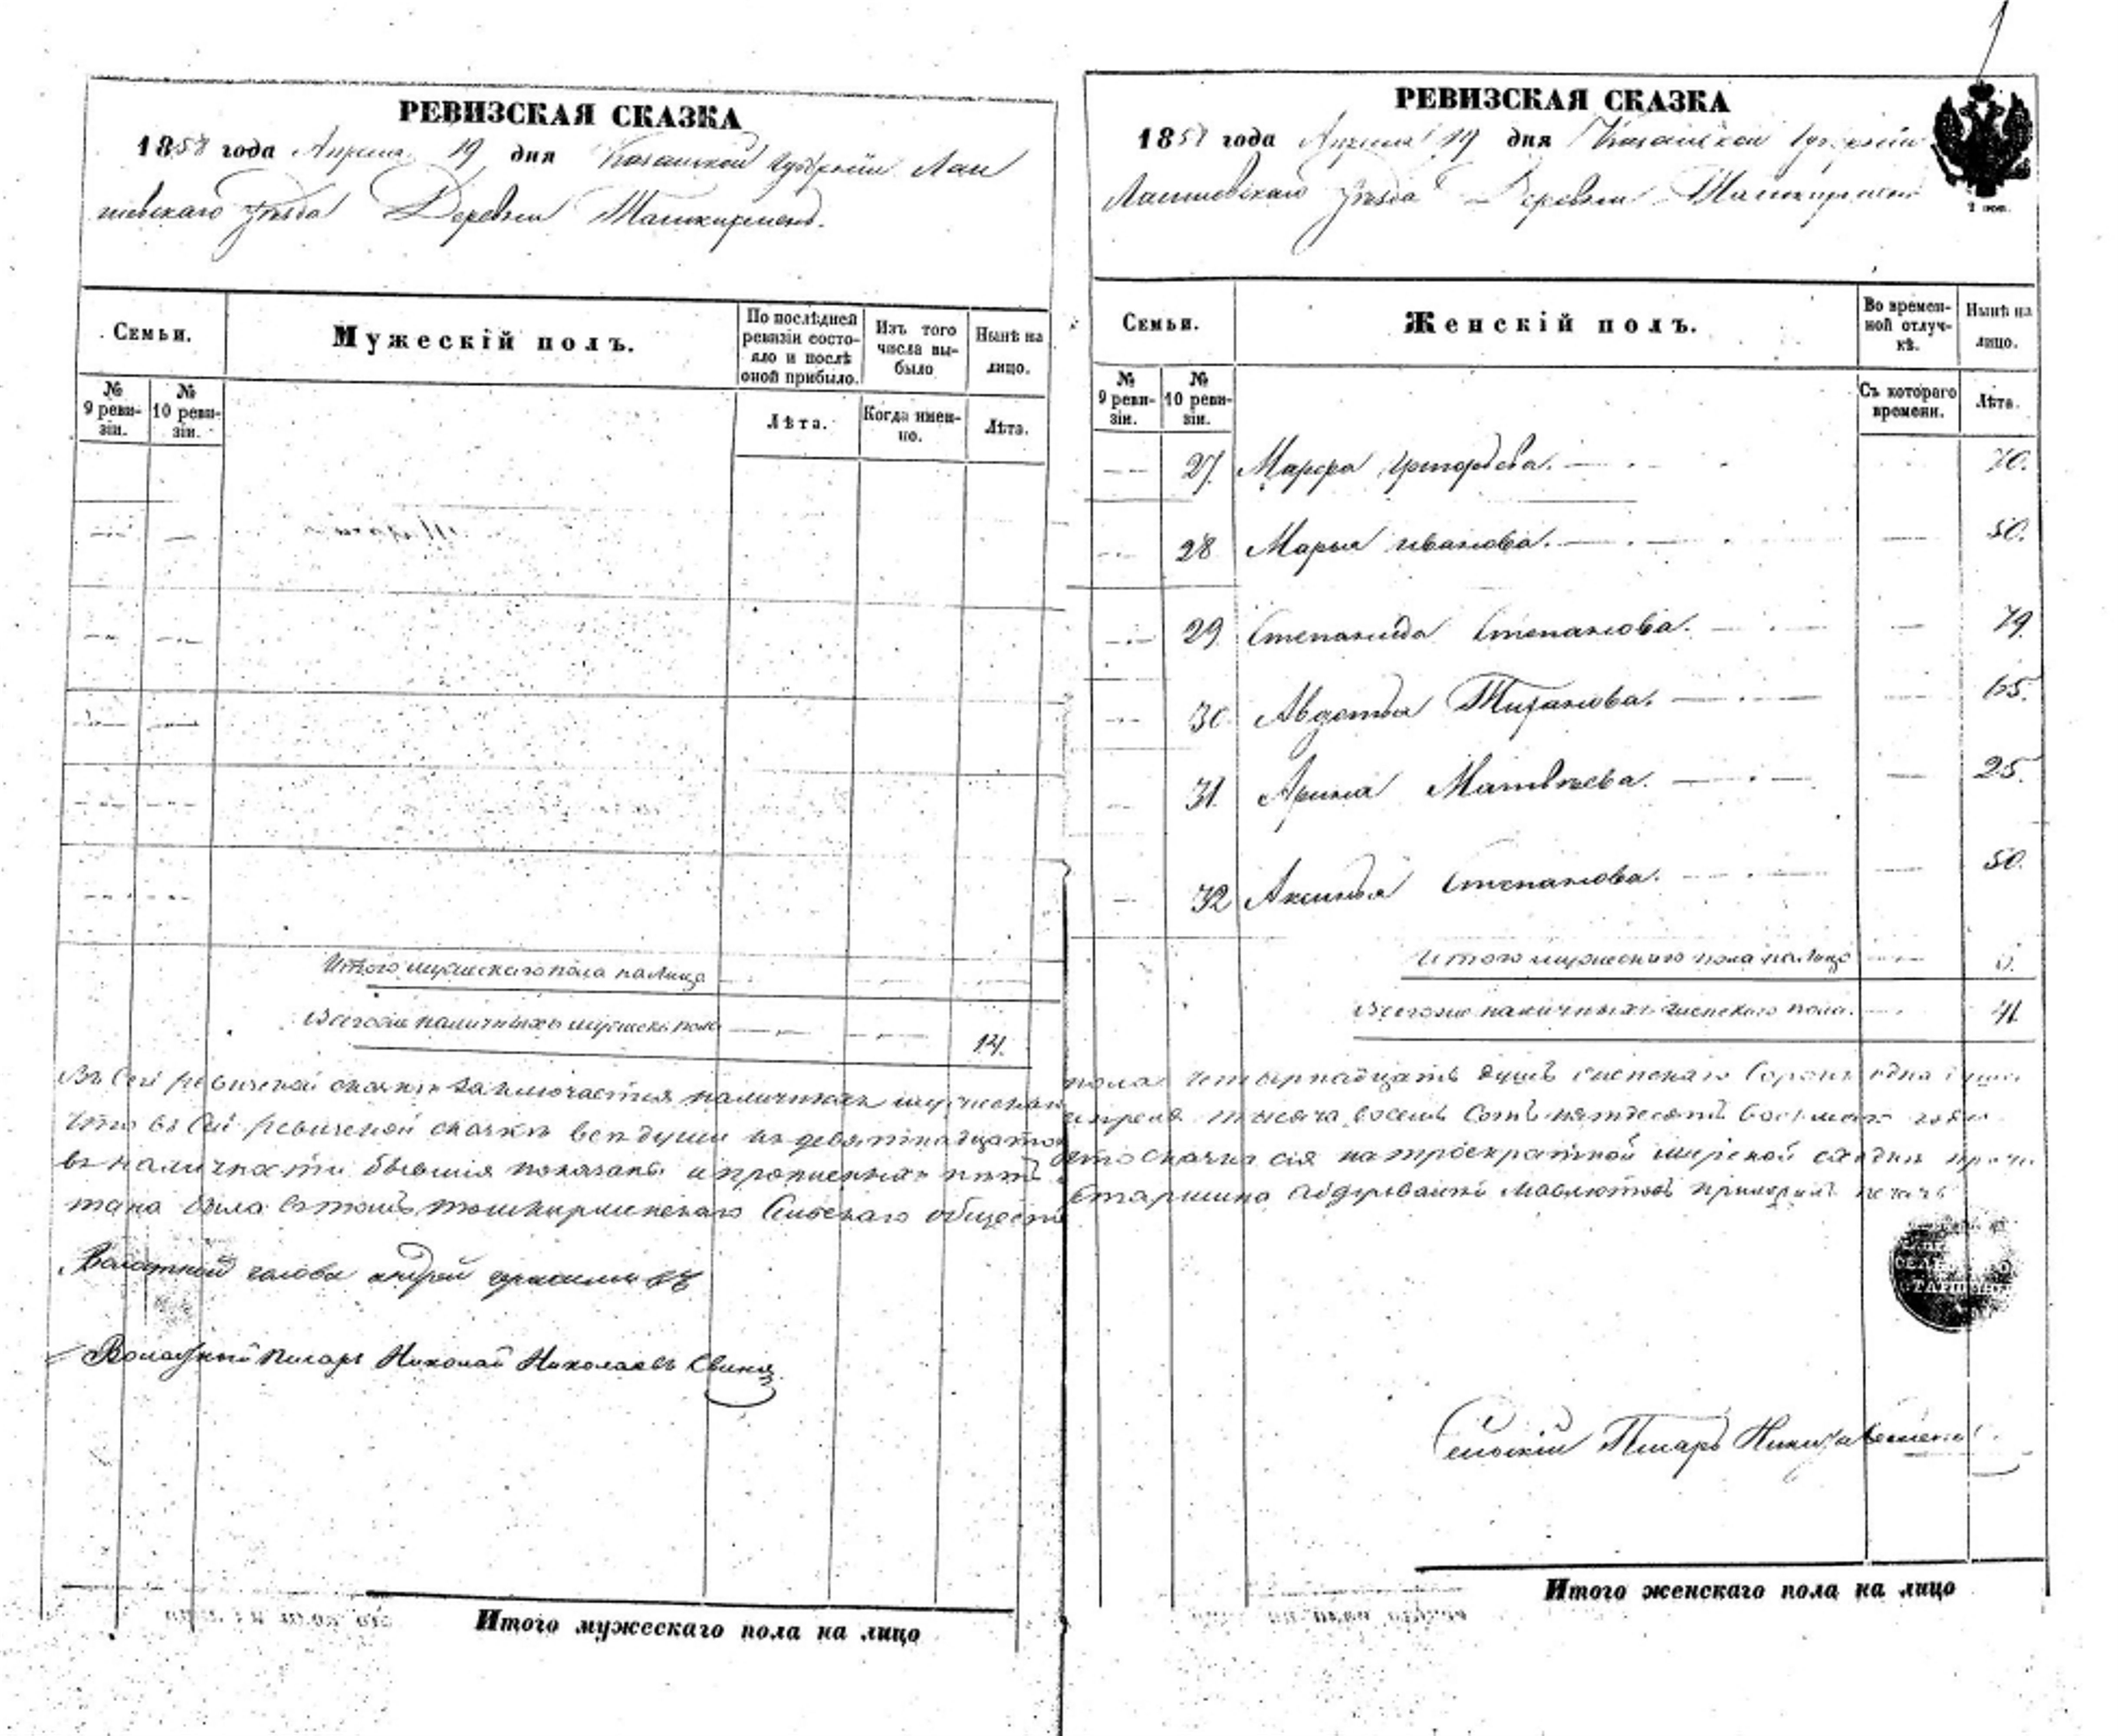 РЕВИЗСКАЯ СКАЗКА
1858 года Апреля 19 дня Казанской губерніи Лаи
шевскаго уѣзда Деревни Ташкирмень.
Семьи.
Мужескій полъ.
По послѣдней ревизіи состояло и послѣ оной прибыло.
Изъ того числа выбыло
Нынѣ на лицо.
№ 9 ревизіи.
№ 10 ревизіи.
Лѣта.
Когда именно.
Лѣта.
Итого мужескаго пола на лицо
Всего наличныхъ мужеска пола 14.
Въ сей ревизской сказкѣ заключается наличныхъ мужескаго
что въ сей ревизской сказкѣ всѣ души къ девятнадцатое
въ наличности бывшія показаны и прописныхъ нѣтъ
тана была въ томъ ташкирменскаго сельскаго общества
Волостной голова андрей
Волостной писарь Николай Николаевъ
Итого мужескаго пола на лицо
РЕВИЗСКАЯ СКАЗКА
1858 года Апреля 19 дня Казанской губерніи
Лаишевскаго уѣзда Деревни Ташкирмень
Семьи.
Женскій полъ.
Во временной отлучкѣ.
Нынѣ на лицо.
№ 9 ревизіи.
№ 10 ревизіи.
Съ котораго времени.
Лѣта.
27. Марфа Григорьева. 70.
28 Марья Иванова. 50.
29 Степанида Степанова. 79.
30 Авдотья 65.
31. Арина Матвѣева. 25.
32 Аксинья Степанова. 50.
Итого пола на лицо 6.
Всего наличныхъ женскаго пола. 41.
пола четырнадцать душъ женскаго сорокъ одна душа
апреля тысяча восемь сотъ пятьдесятъ восьмаго года
что сказка сія на троекратной мирской сходкѣ прочи
Старшина приложилъ печать
Сельскій Писарь
Итого женскаго пола на лицо